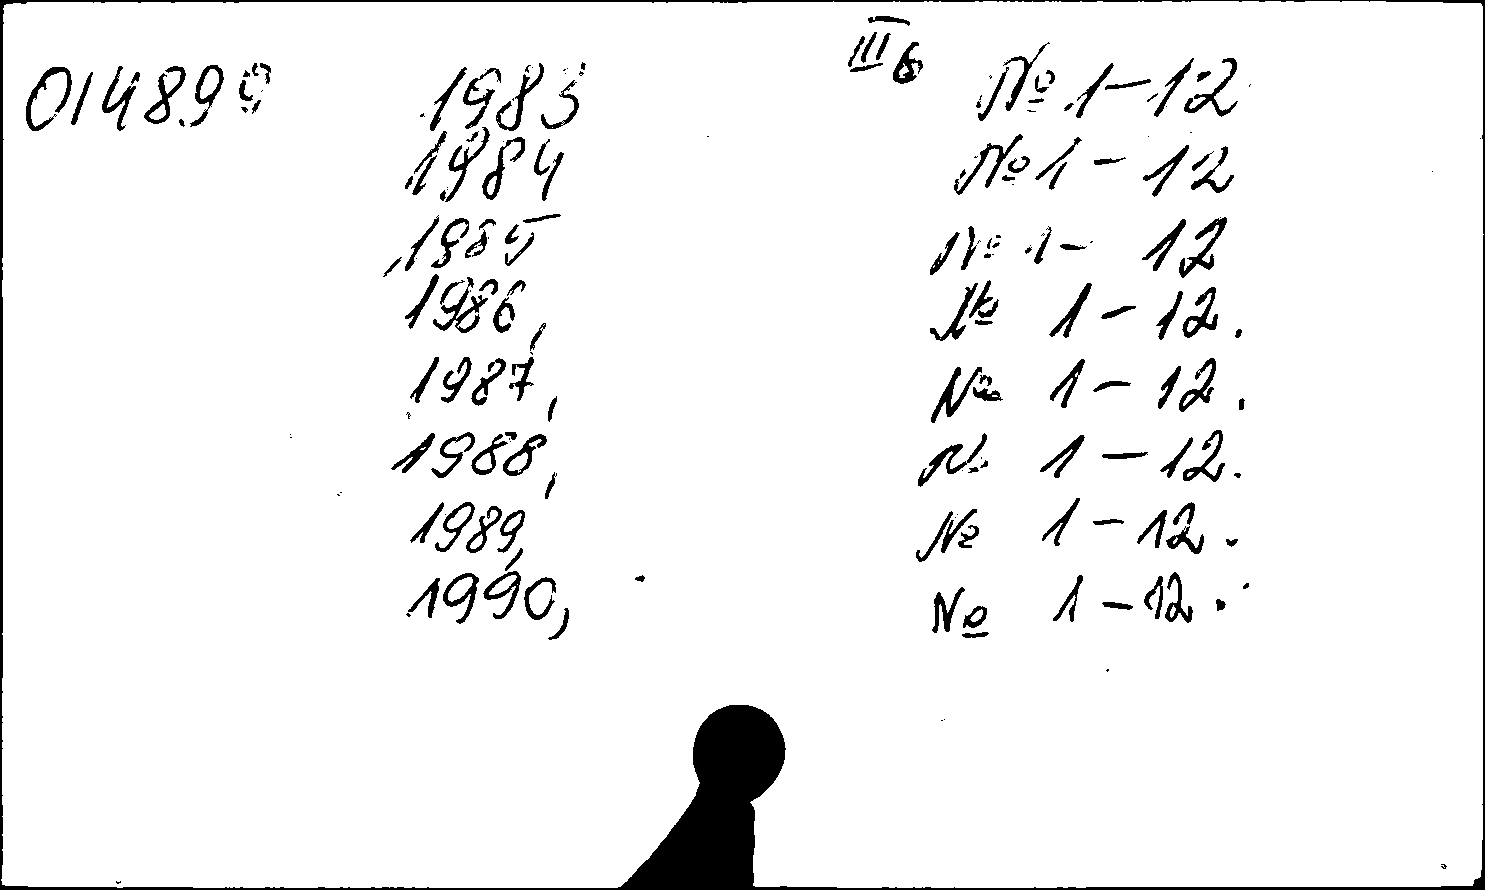 III б
014899 1983 № 1-12
1984 № 1-12
1985 № 1- 12
1986, № 1-12.
1987, № 1-12.
1988, № 1-12.
1989, № 1-12.
1990, № 1-12.